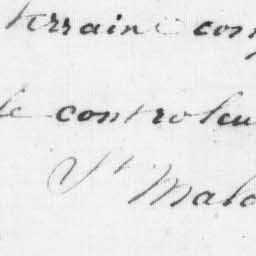 terrain con
le controleu
St Malo